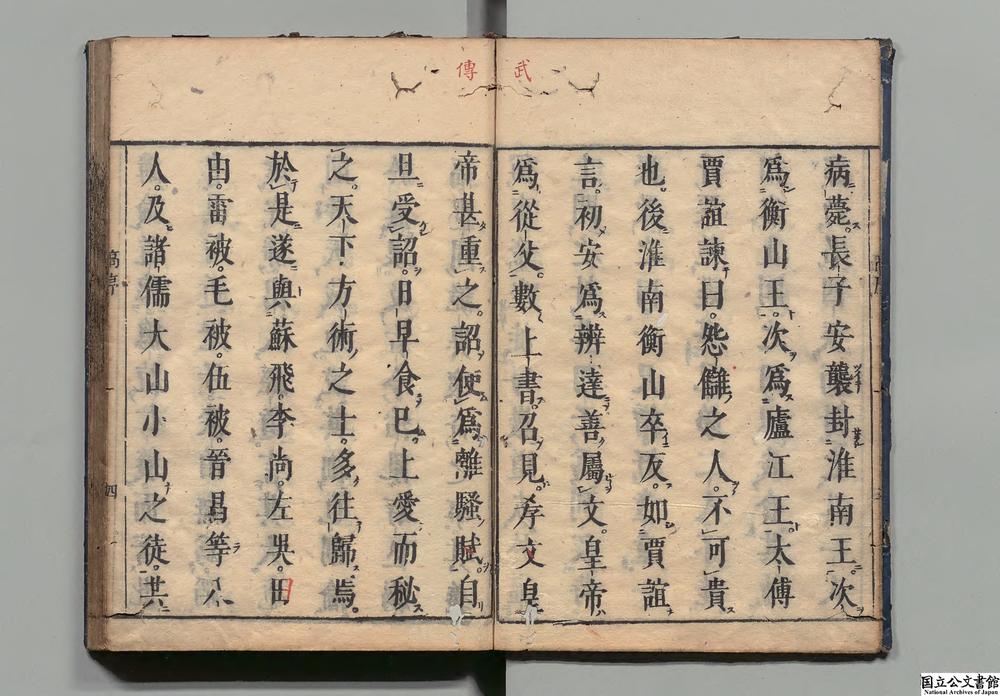 武傳
病薨。長子安襲封淮南王。次
爲衡山王。次爲廬江王。太傅
賈誼諫曰。怨讎之人。不可貴
也。後淮南衡山卒反。如賈誼
言。初安爲辨達善屬文。皇帝
爲從父。數上書。召見。孝文皇
帝甚重之。詔使爲離騷賦。自
旦受詔。日早食已。上愛而秘
之。天下方術之士。多往歸焉。
於是遂與蘇飛。李尚。左吳。田
由。雷被。毛被。伍被。晉昌等八
人。及諸儒大山小山之徒。共
四
国立公文書館
National Archives of Japan